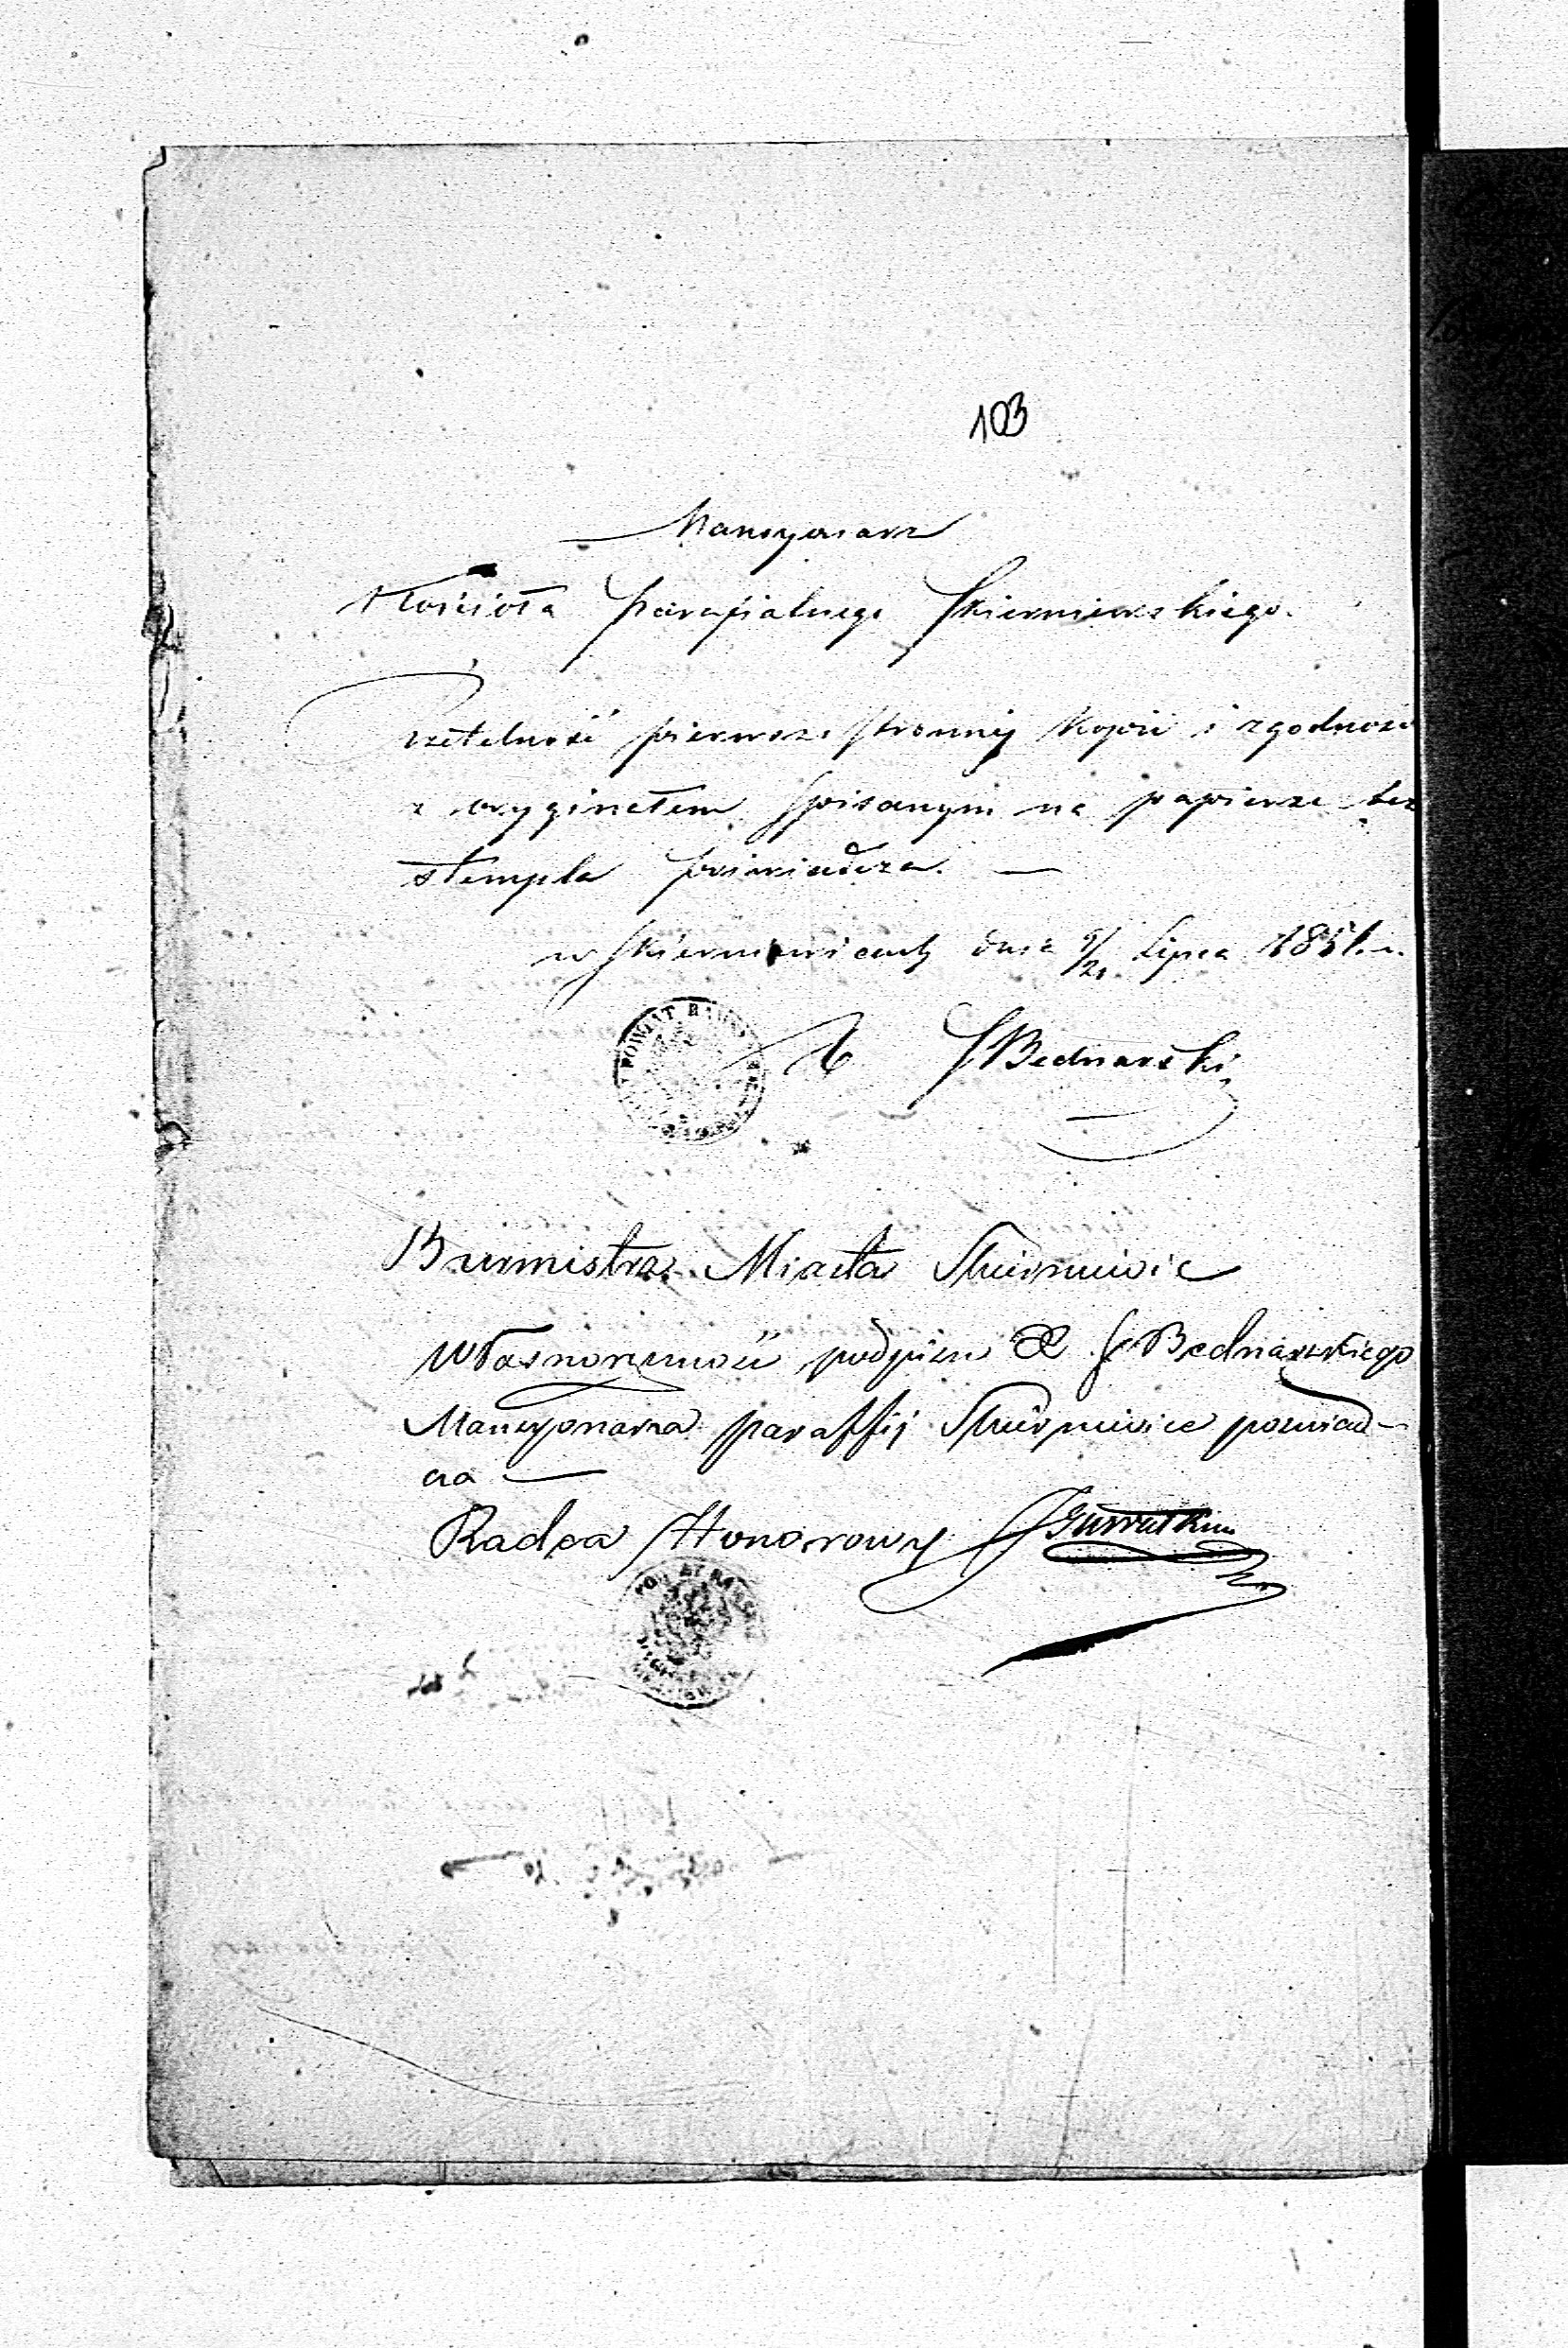 103
Mansyonarz
Kościoła Parafialnego Skierniewskiego.
Rzetelność pierwsze stronnij Kopii i zgodność
z oryginałem spisanym na papierze bez
stempla poświadcza. —
w Skierniewicach dnia 9/21 Lipca 1851. r.
POWIAT RAWSKI
X S Bednarski
Burmistrz Miasta Skierniewic
Własnoręczność podpisu X S Bednarskiego
Mansyonarza paraffij Skierniewice poświad-
cza —
Radca Honorowy
POWIAT RAWSKI